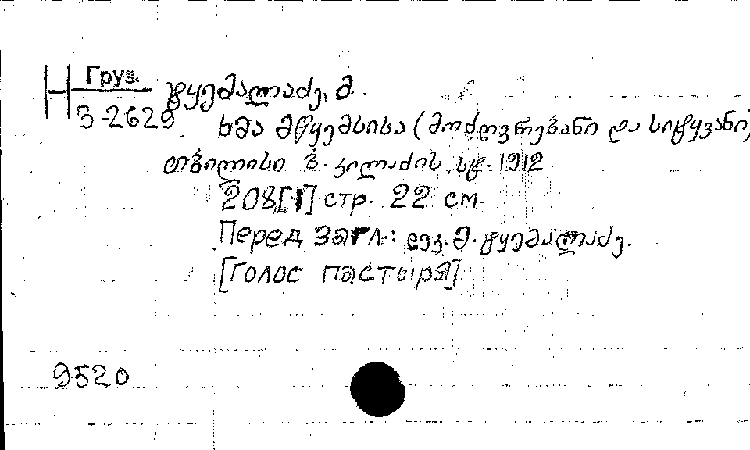 Груз.
3-2629
ტყემალაძე, მ.
ხმა მწყემსისა (მოძღვრებანი და სიტყვანი)
თბილისი ვ. კილაძის სტ. 1912
208[1] стр. 22 см.
Перед загл.: დეკ. მ. ტყემალაძე.
[Голос пастыря]
9520